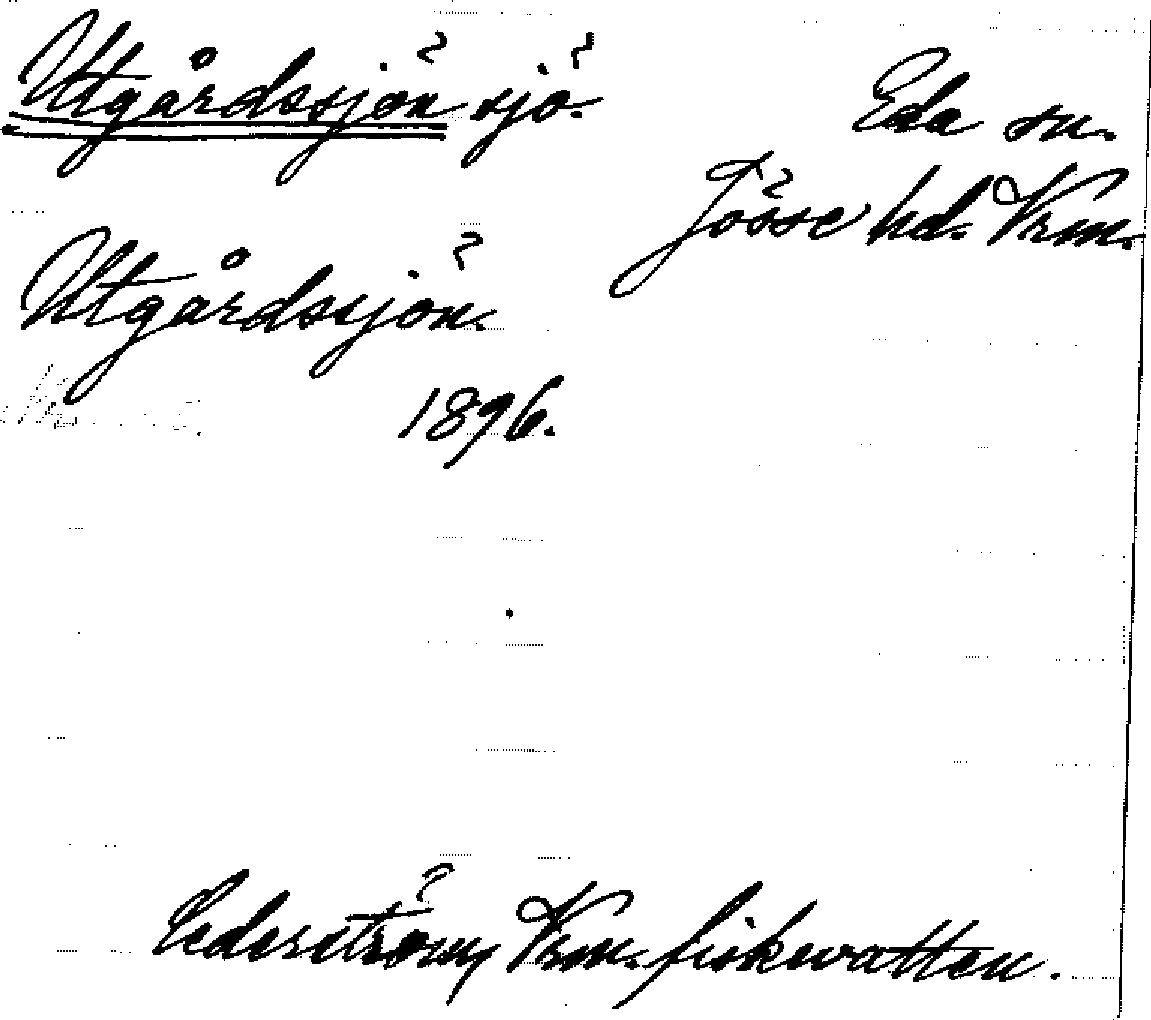 Utgårdssjön sjö.
Eda sn.
Jösse hd. Vrm.
Utgårdssjön.
1896.
Cederström, Vrm. fiskevatten.